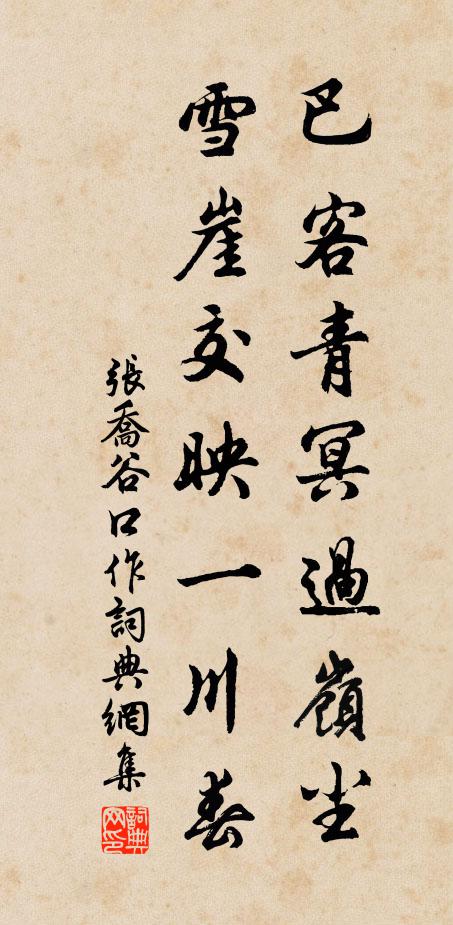 巴客青冥過嶺尘
雪崖交映一川春
張喬谷口作詞典網集
詞典網印